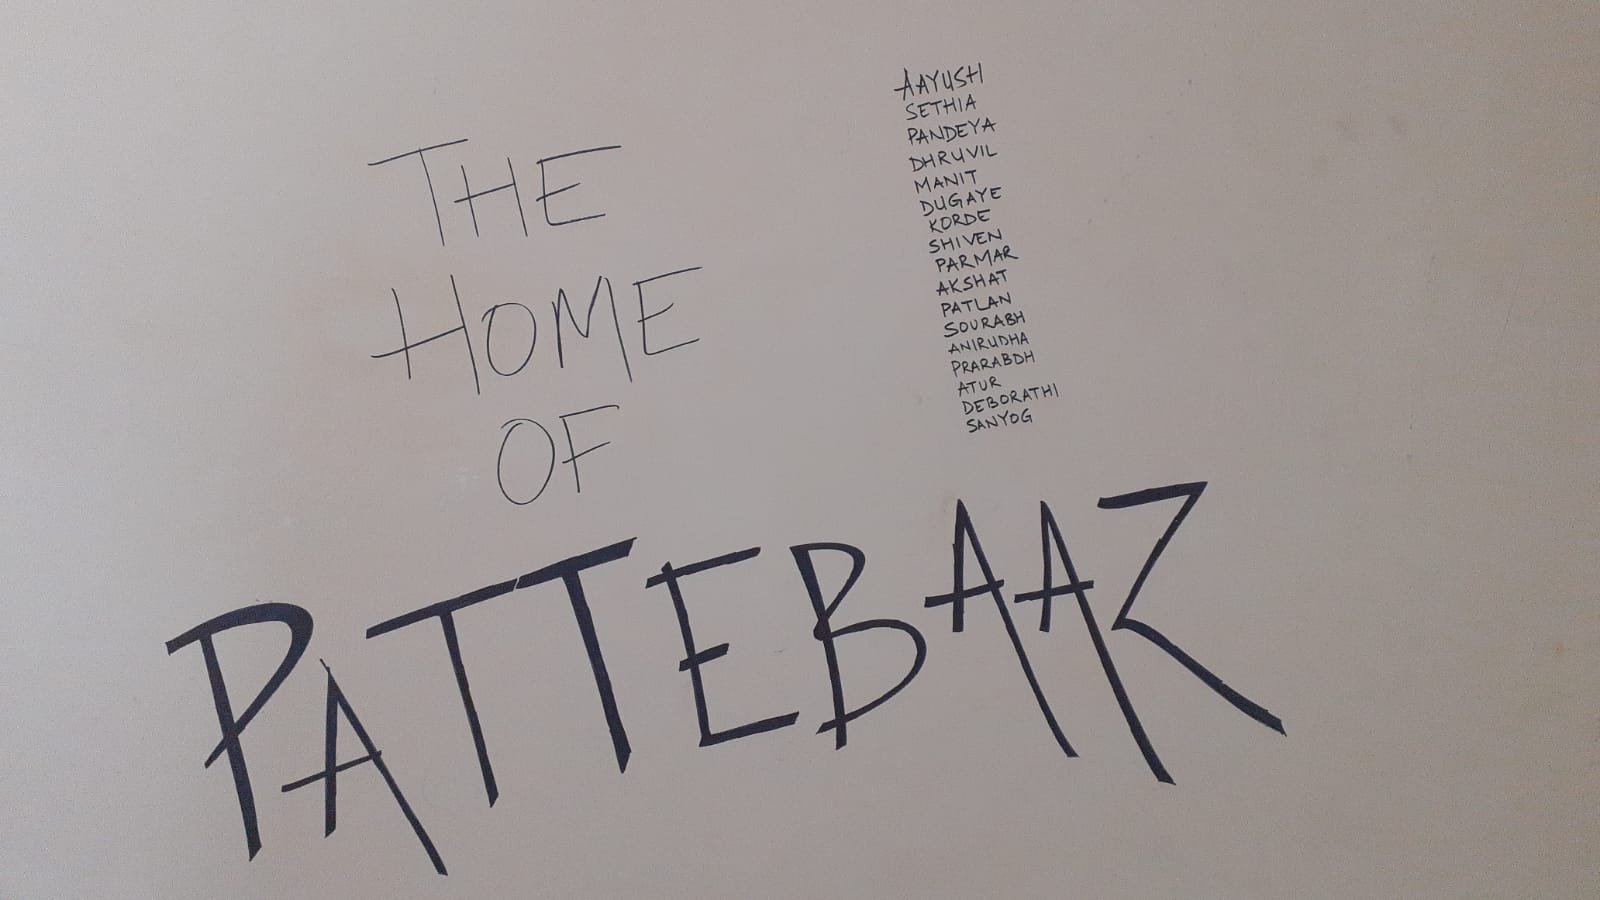 THE
HOME
OF
PATTEBAAZ
AAYUSH
SETHIA
PANDEYA
DHRUVIL
MANIT
DUGAYE
KORDE
SHIVEN
PARMAR
AKSHAT
PATLAN
SOURABH
ANIRUDHA
PRARABDH
ATUR
DEBORATHI
SANYOG